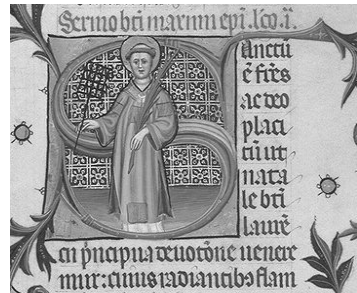 Sermo bti maximi epi. lco. i.
Sanctu
e fres
ac deo
placi
tu ut
nata
le bti
laure
cii pncipua deuotone uenere
mur: cuius radiantibs flam